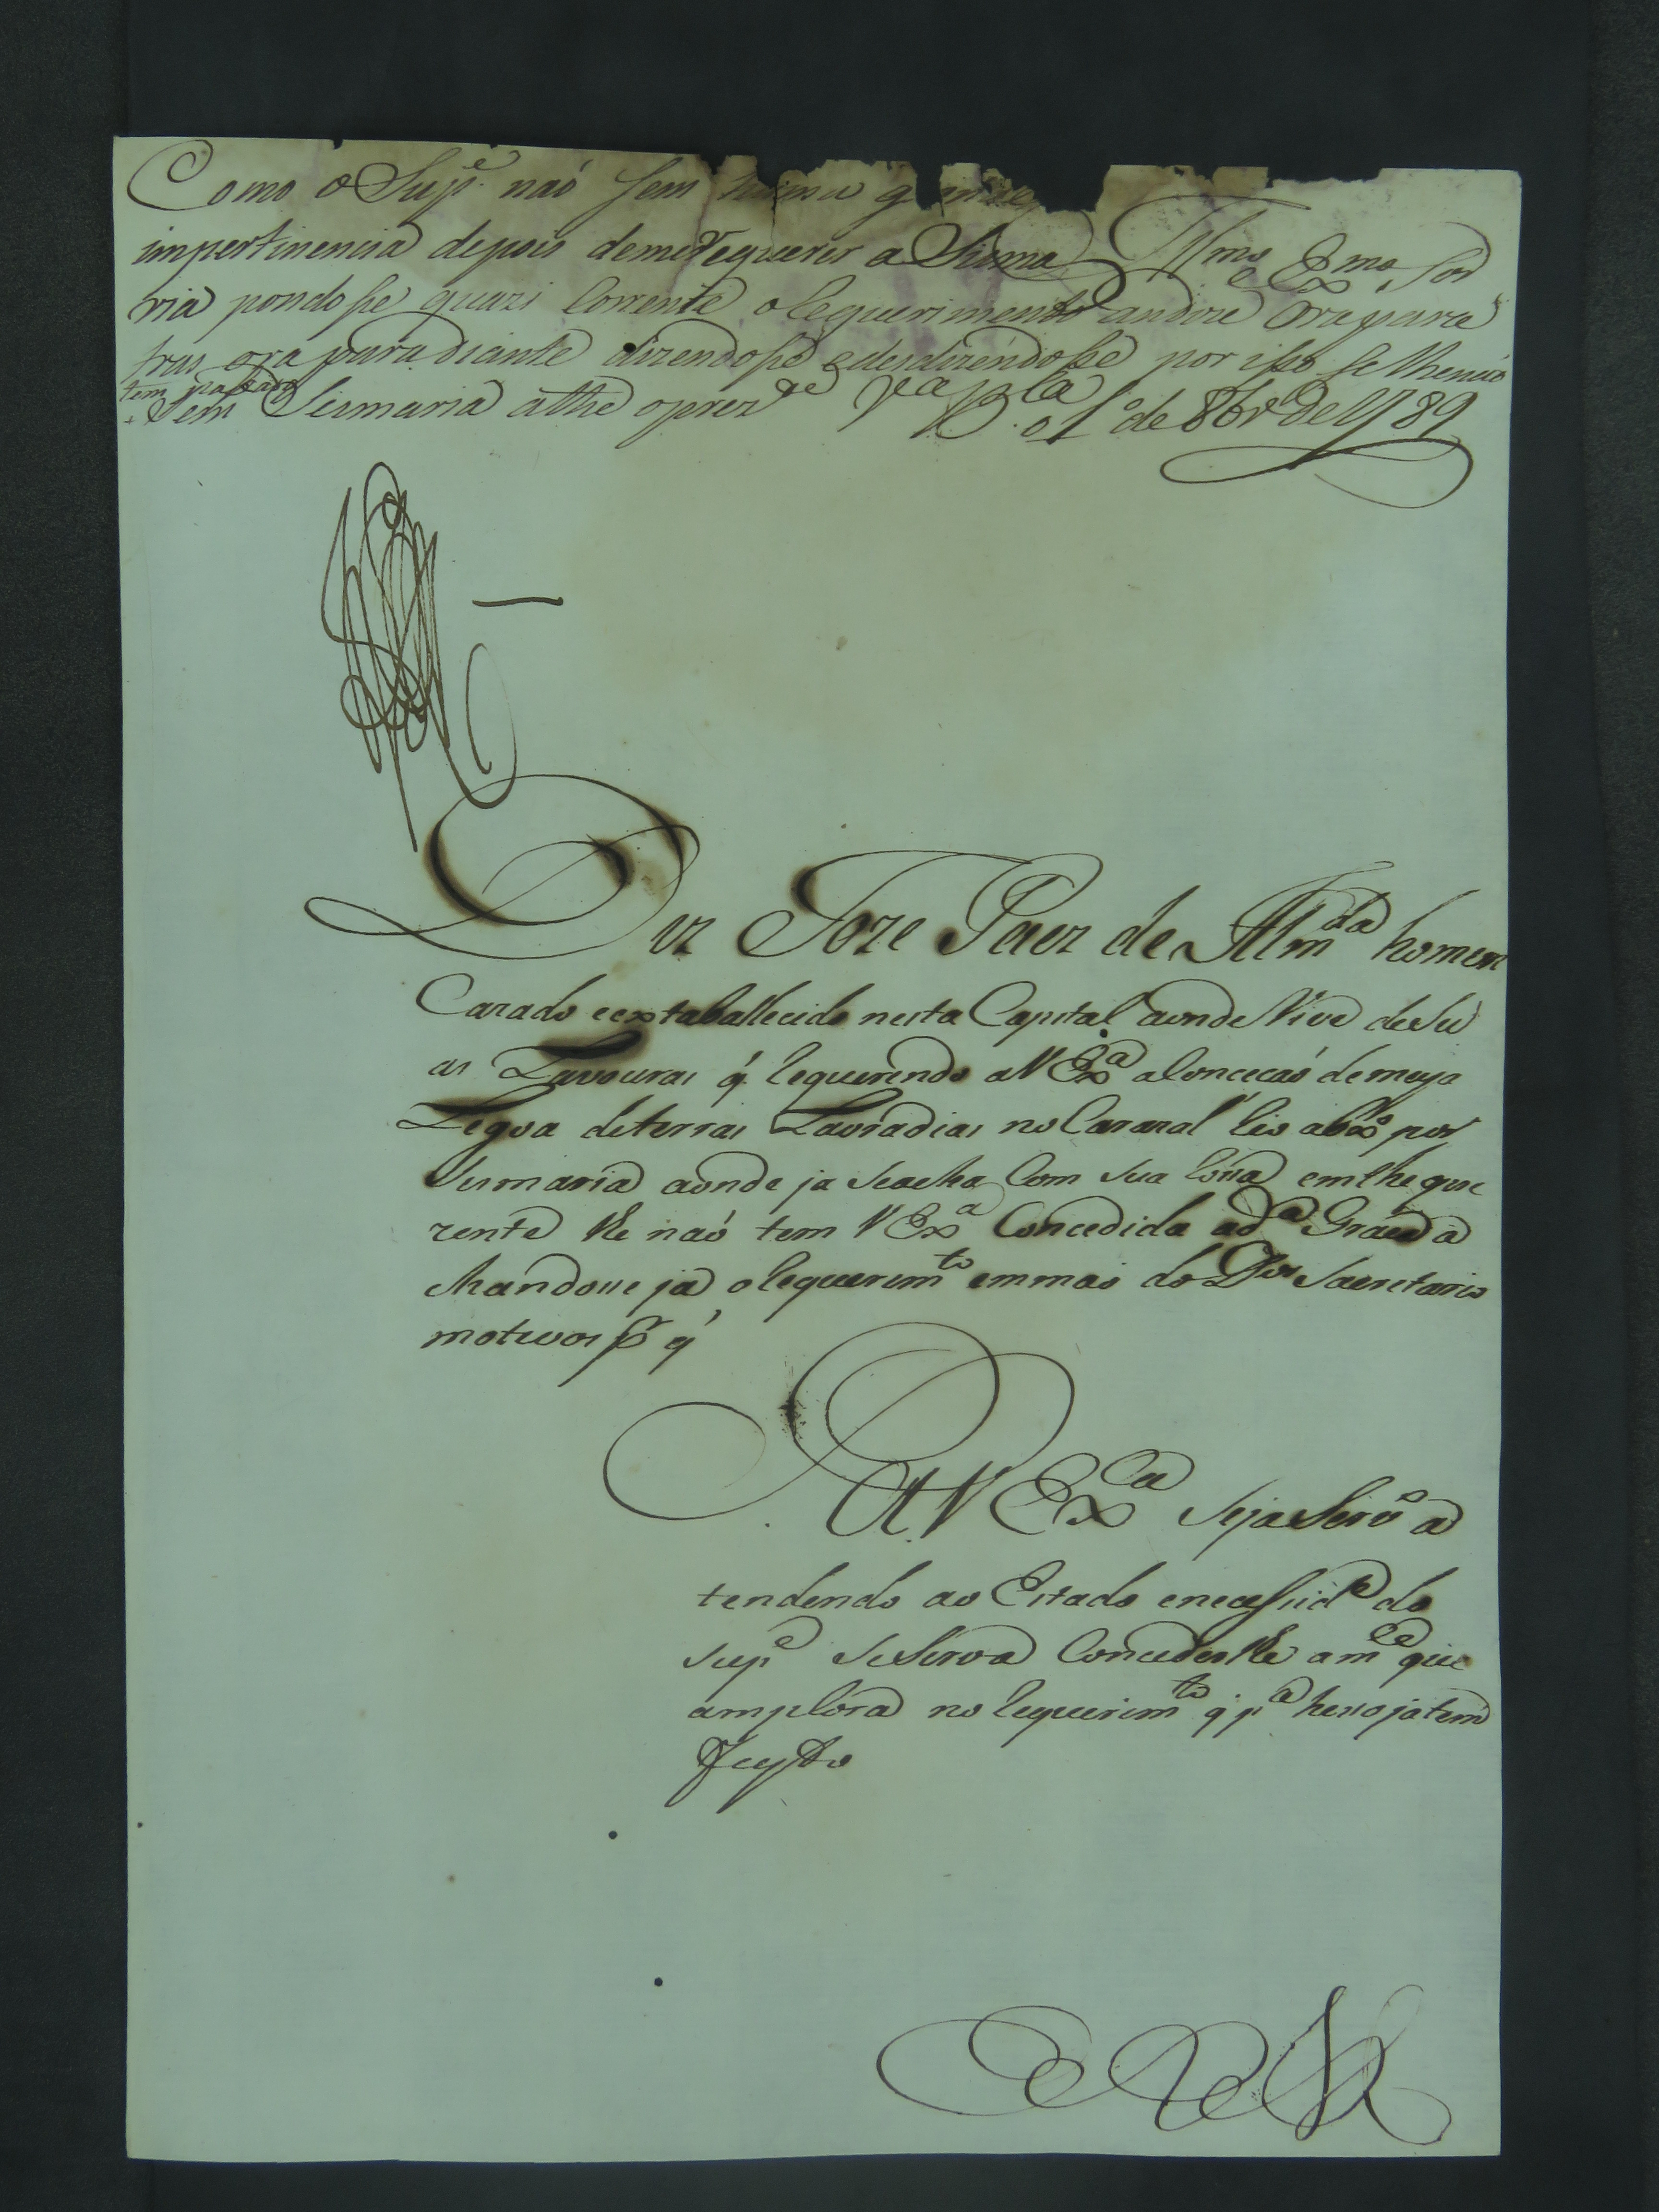 Como o Supe. naó sem huma grande
impertinencia depois demerequerer a Sisma
Illmo e Exmo. Sor
ria pondosse quazi Corrente o requerimento andou Ora para
tras ora para diante dizendosse e desdizendosse por isso se lhe
tem passado
Sem Sismaria athe o prezde Va Bla o 1º de 8bro de 1789
Diz Joze Paez de Almda homem
Cazado e extaballecido nesta Capital aonde Vive de Su
as Lavouras q́ requerendo a V Exa a Concecaó de meya
Legoa de terras Lavradias no Cazazal Rio abxo por
Sismaria aonde ja se acha Com sua
zente lhe naó tem V Exa Concedida a da Graca a
chandosse ja o requerimto em mao do Dor Secretario
motivos pr q́
P
A V Exca Seja Servo a
tendendo ao Estado e necessidde do
Supe Se Sirva Concederlhe a mce que
amplora no requerimto q́ pa hesso ja tem
Feyto
E R Mce